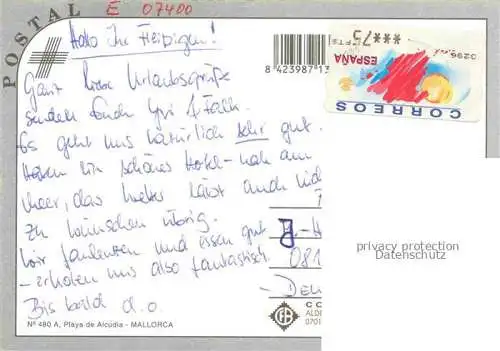 POSTAL
E 07400
Hallo ihr Fleißigen!
Ganz liebe Urlaubsgrüße
senden Euch
Es geht uns natürlich sehr gut.
Haben ein schönes Hotel - nah am
Meer, das Wetter lässt auch nich
zu wünschen übrig.
Wir faulenzen und essen gut
- erholen uns also fantastisch.
Bis bald d.o.
8 423987 13
***75
PTS
0296
ESPAÑA
CORREOS
D-H
081
DEU
privacy protection
Datenschutz
CO
ALDE
0701
Nº 480 A, Playa de Alcudia - MALLORCA